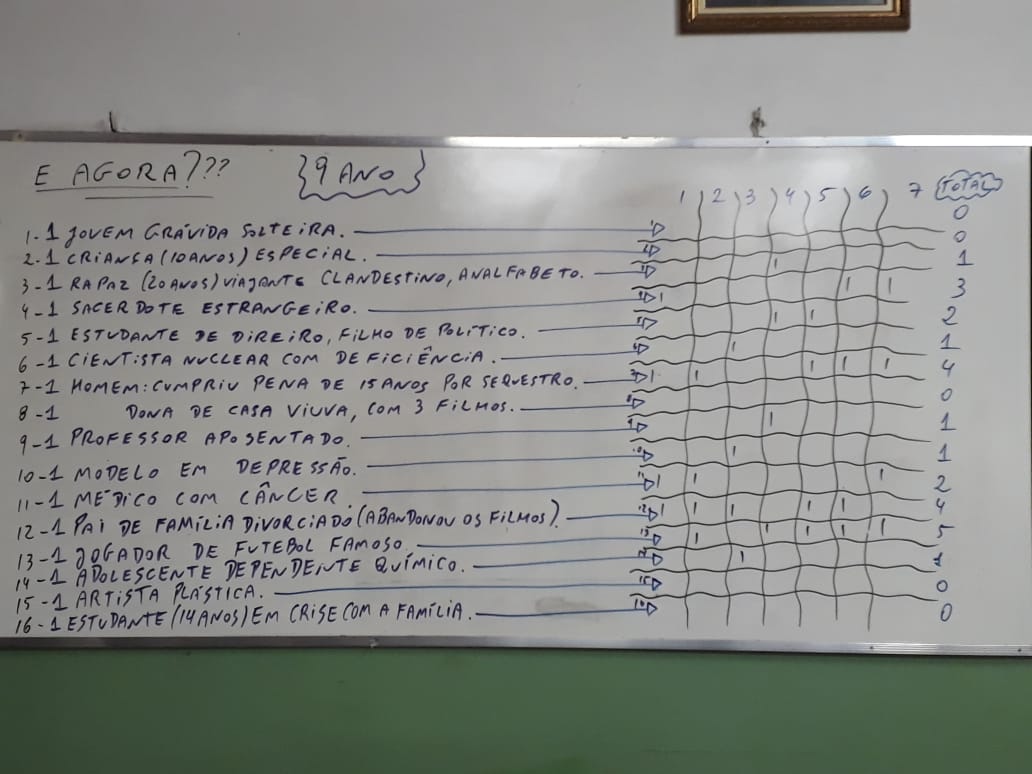 E AGORA???
9 ANO
1 2 3 4 5 6 7 TOTAL
1-1 JOVEM GRÁVIDA SOLTEIRA. 0
2-1 CRIANSA (10 ANOS) ESPECIAL. 0
3-1 RAPAZ (20 ANOS) VIAJANTE CLANDESTINO, ANALFABETO. 1
4-1 SACERDOTE ESTRANGEIRO. 3
5-1 ESTUDANTE DE DIREIRO, FILHO DE POLÍTICO. 2
6-1 CIENTISTA NUCLEAR COM DEFICIÊNCIA. 1
7-1 HOMEM: CUMPRIU PENA DE 15 ANOS POR SEQUESTRO. 4
8-1 DONA DE CASA VIUVA, COM 3 FILHOS. 0
9-1 PROFESSOR APOSENTADO. 1
10-1 MODELO EM DEPRESSÃO. 1
11-1 MÉDICO COM CÂNCER. 2
12-1 PAI DE FAMÍLIA DIVORCIADO (ABANDONOU OS FILHOS). 4
13-1 JOGADOR DE FUTEBOL FAMOSO 5
14-1 ADOLESCENTE DEPENDENTE QUÍMICO. 1
15-1 ARTISTA PLÁSTICA. 0
16-1 ESTUDANTE (14 ANOS) EM CRISE COM A FAMÍLIA. 0